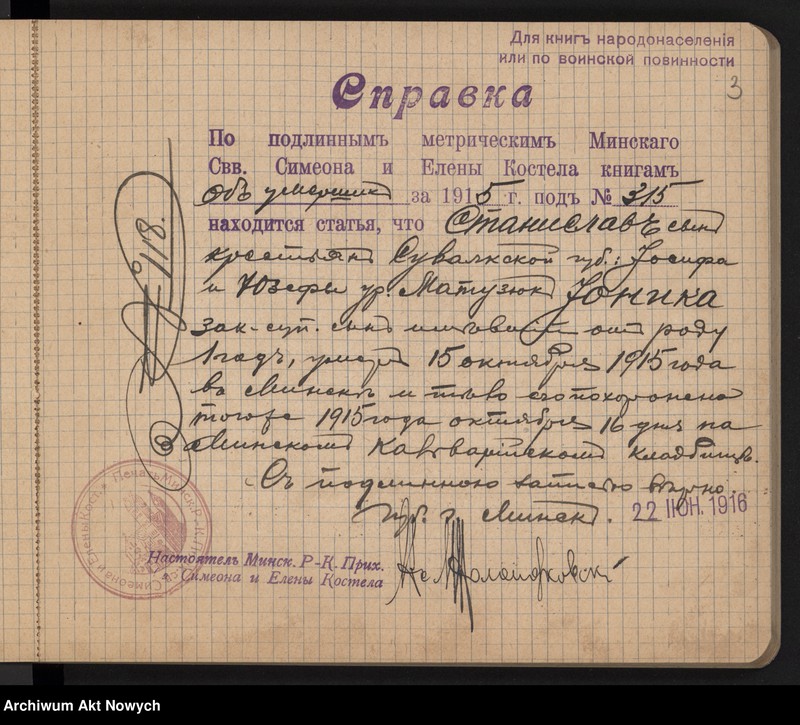 Для книгъ народонаселенія
или по воинской повинности
3
Справка
По подлиннымъ метрическимъ Минскаго
Свв. Симеона и Елены Костела книгамъ
объ умершихъ за 1915 г. подъ № 315
находится статья, что Станиславъ сынъ
крестьянъ Сувалкской губ.: Іосифа
и Юзефы ур. Матузюкъ Јоника
зак. суп. сынъ отъ роду
1 годъ, умеръ 15 октября 1915 года
въ Минскѣ и тѣло его похоронено
тогоже 1915 года октября 16 дня на
Минскомъ Кальварійскомъ кладбищѣ.
Съ подлинною записью вѣрно.
Губ. г. Минскъ. 22 ІЮН. 1916
Настоятель Минск. Р-К. Прих.
Симеона и Елены Костела
№ 118.
Archiwum Akt Nowych